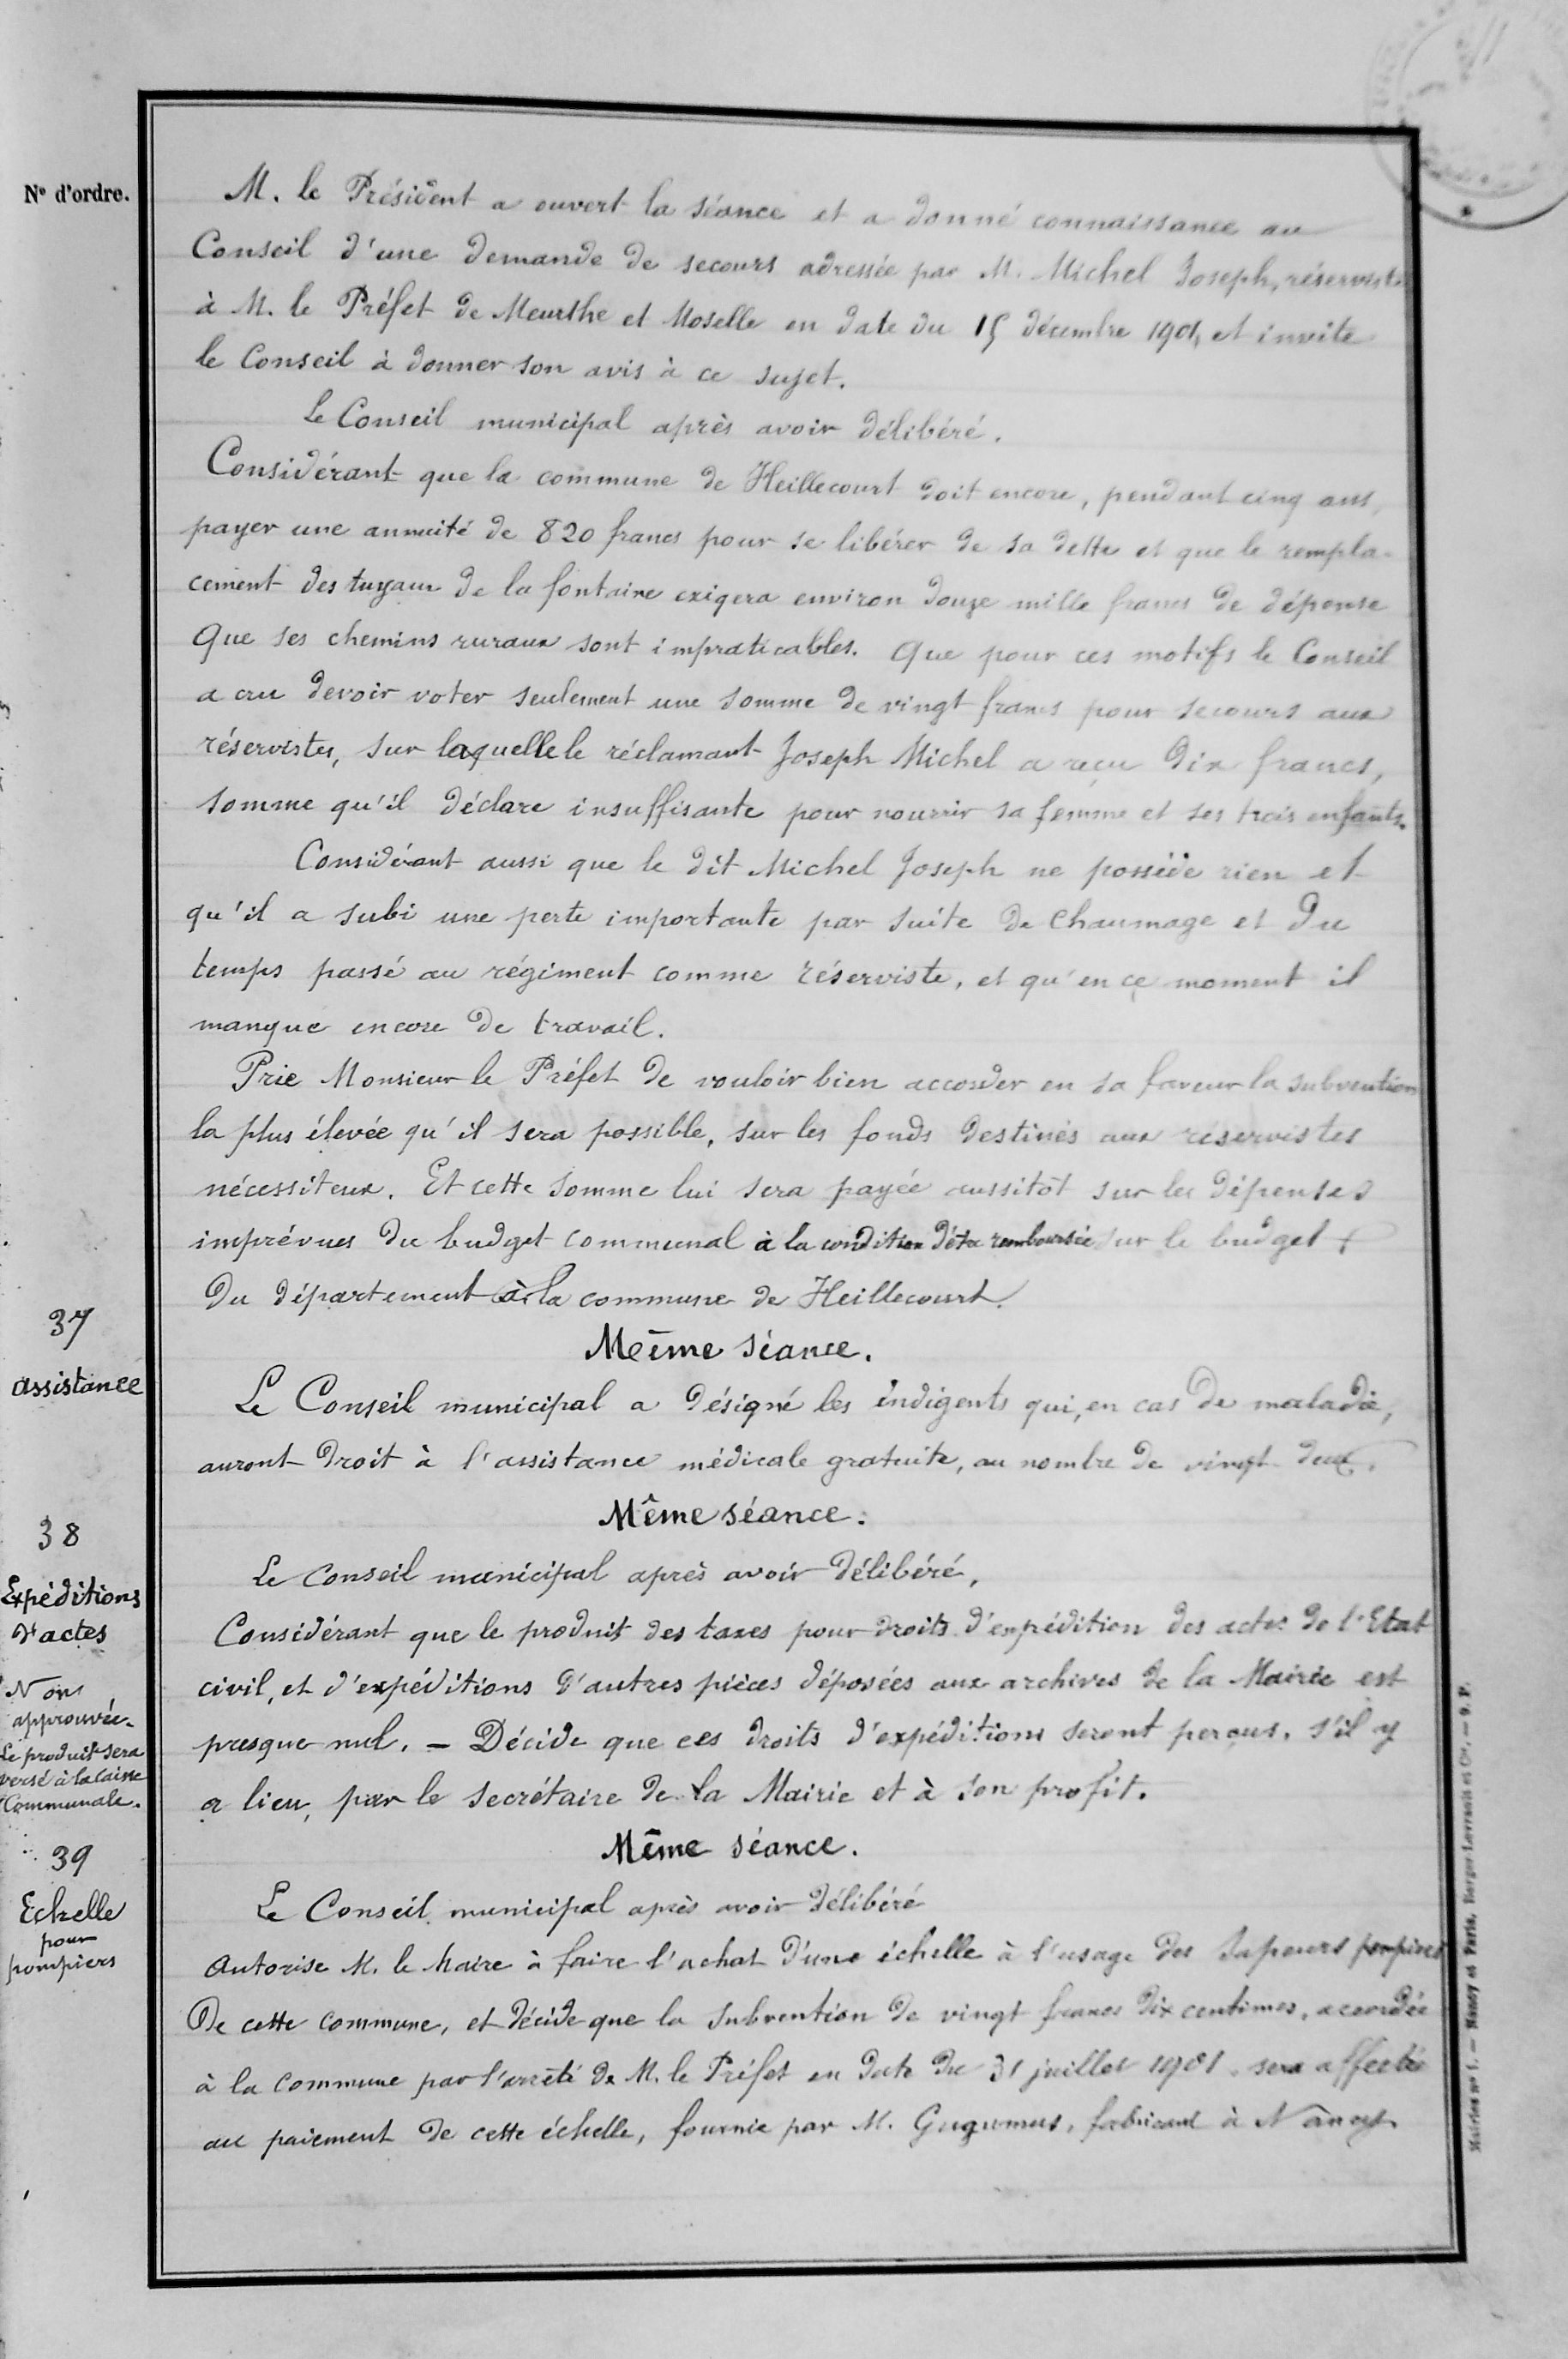 N° d'ordre.
M. le Président a ouvert la séance et a donné connaissance au
Conseil d'une demande de secours adressée par M. Michel Joseph, réserviste
à M. le Préfet de Meurthe et Moselle en date du 15 décembre 1901, et invite
le Conseil à donner son avis à ce sujet.
Le Conseil municipal après avoir délibéré.
Considérant que la commune de Heillecourt doit encore, pendant cinq ans,
payer une annuité de 820 francs pour se libérer de sa dette et que le rempla-
cement des tuyaux de la fontaine exigera environ douze mille francs de dépense
Que ses chemins ruraux sont impraticables. Que pour ces motifs le Conseil
a cru devoir voter seulement une somme de vingt francs pour secours aux
réservistes, sur laquelle le réclamant Joseph Michel a reçu dix francs,
somme qu'il déclare insuffisante pour nourrir sa femme et ses trois enfants.
Considérant aussi que le dit Michel Joseph ne possède rien et
qu'il a subi une perte importante par suite de chaumage et du
temps passé au régiment comme réserviste, et qu'en ce moment il
manque encore de travail.
Prie Monsieur le Préfet de vouloir bien accorder en sa faveur la subvention
la plus élevée qu'il sera possible, sur les fonds destinés aux réservistes
nécessiteux. Et cette somme lui sera payée aussitôt sur les dépenses
imprévues du budget communal à la condition d'être remboursée sur le budget
du département à la commune de Heillecourt.
37
assistance
Même séance.
Le Conseil municipal a désigné les indigents qui, en cas de maladie,
auront droit à l'assistance médicale gratuite, au nombre de vingt deux.
38
Expéditions
d'actes
Non
approuvée.
Le produit sera
versé à la caisse
Communale.
Même séance.
Le Conseil municipal après avoir délibéré,
Considérant que le produit des taxes pour droits d'expédition des actes de l'Etat
civil, et d'expéditions d'autres pièces déposées aux archives de la Mairie est
presque nul. - Décide que ces droits d'expéditions seront perçus, s'il y
a lieu, par le secrétaire de la Mairie et à son profit.
39
Echelle
pour
pompiers
Même séance.
Le Conseil municipal après avoir délibéré
Autorise M. le Maire à faire l'achat d'une échelle à l'usage des Sapeurs pompiers
De cette commune, et décide que la subvention de vingt francs dix centimes, accordée
à la commune par l'arrêté de M. le Préfet en date du 31 juillet 1901 sera affectée
au paiement de cette échelle, fournie par M. Gugumus, fabricant à Nancy.
Mairies n° 1. — Nancy et Paris, Berger-Levrault et Cie. —